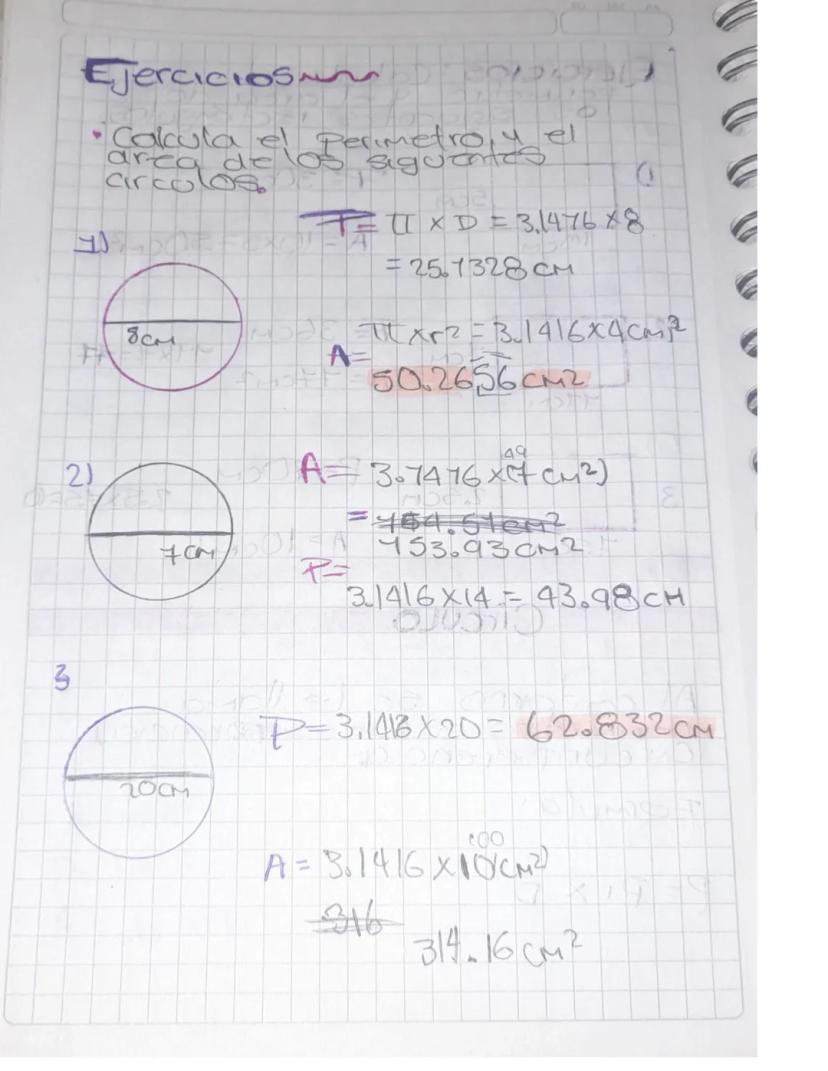 Ejercicios
• Calcula el perimetro, y el
area de los siguentes
circulos.
1)
8cm
P= π x D = 3.1416 x 8
= 25.1328 cm
A= π x r2 = 3.1416 x 4cm²
50.2656 cm2
2)
7cm
A= 3.1416 x (7 cm²)
49
= 154.51cm²
153.93cm2
P=
3.1416 x 14 = 43.98 cm
3
20cm
P= 3.1416 x 20 = 62.832cm
100
A = 3.1416 x 10(cm²)
316
314.16 cm²